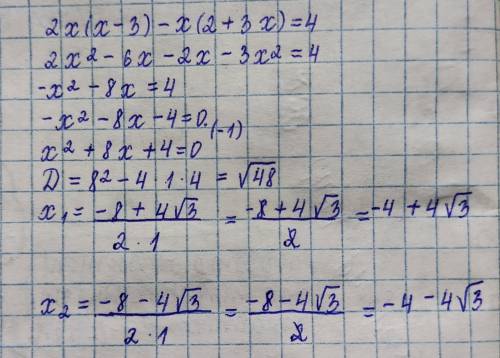 2x(x-3)-x(2+3x)=4
2x²-6x-2x-3x²=4
-x²-8x=4
-x²-8x-4=0 .(-1)
x²+8x+4=0
D=8²-4·1·4=√48
x₁=(-8+4√3)/(2·1)=(-8+4√3)/2=-4+4√3
x₂=(-8-4√3)/(2·1)=(-8-4√3)/2=-4-4√3